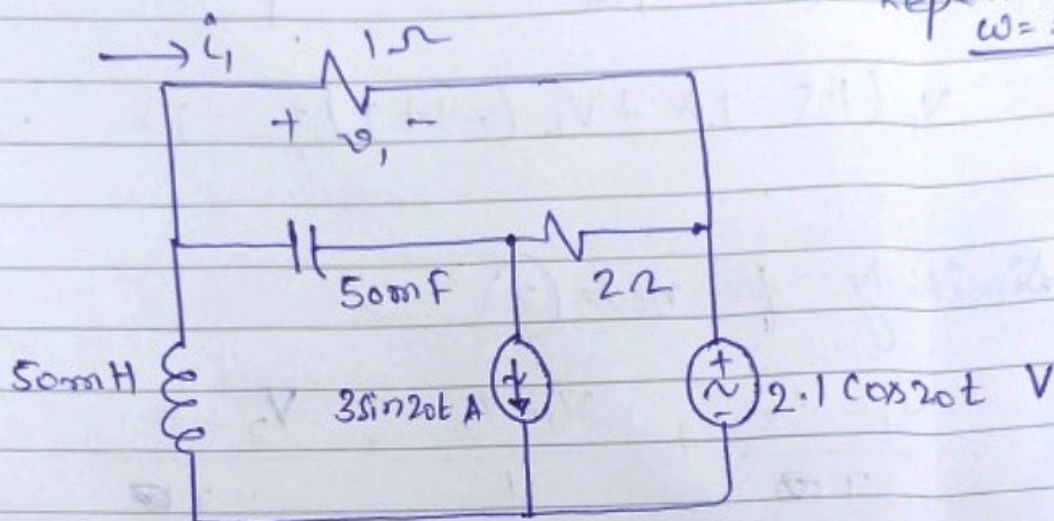 ω=
i₁ 1Ω
+ v₁ -
50mF 2Ω
50mH 3sin20t A + ~ - 2.1 cos20t V